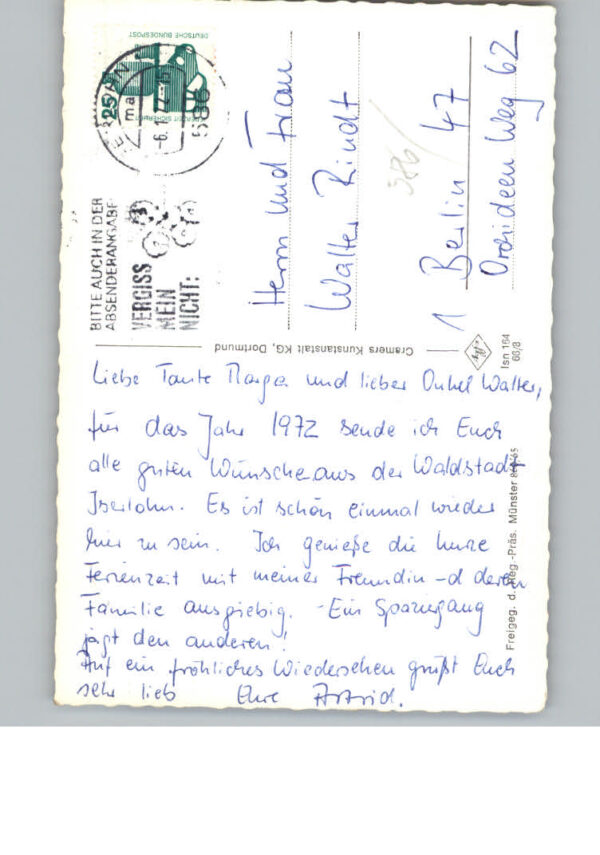 Liebe Tante Marga und lieber Onkel Walter,
für das Jahr 1972 sende ich Euch
alle guten Wünsche aus der Waldstadt
Iserlohn. Es ist schön einmal wieder
hier zu sein. Ich genieße die kurze
Ferienzeit mit meiner Freundin -d deren
Familie ausgiebig. - Ein Spaziergang
jagt den anderen!
Auf ein fröhliches Wiedersehen grüßt Euch
sehr lieb Eure Astrid.
Herrn und Frau
Walter Rindt
1 Berlin 47
Orchideen Weg 62
586/
DEUTSCHE BUNDESPOST
25
-6.1.72-15
586
BITTE AUCH IN DER
ABSENDERANGABE
VERGISS
MEIN
NICHT:
Cramers Kunstanstalt KG, Dortmund
Agfa
Isn 164
66/8
Freigeg. d. Reg.-Präs. Münster